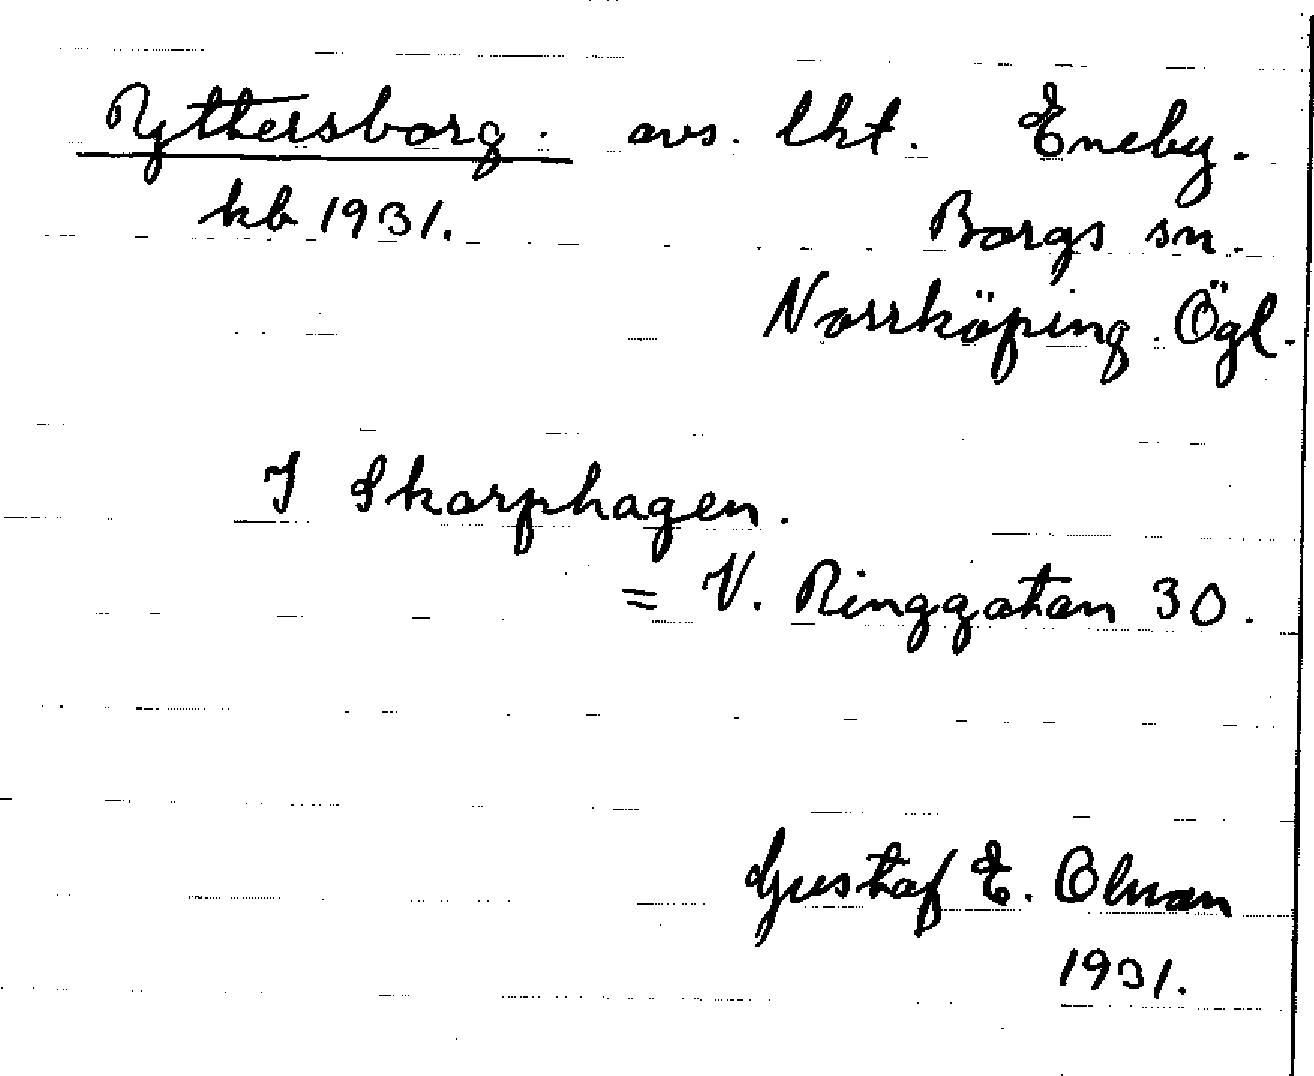 Ryttersborg. avs. lht. Eneby.
kb 1931. Borgs sn.
Norrköping. Ögl.
I Skarphagen.
= V. Ringgatan 30.
Gustaf E. Olsson
1931.